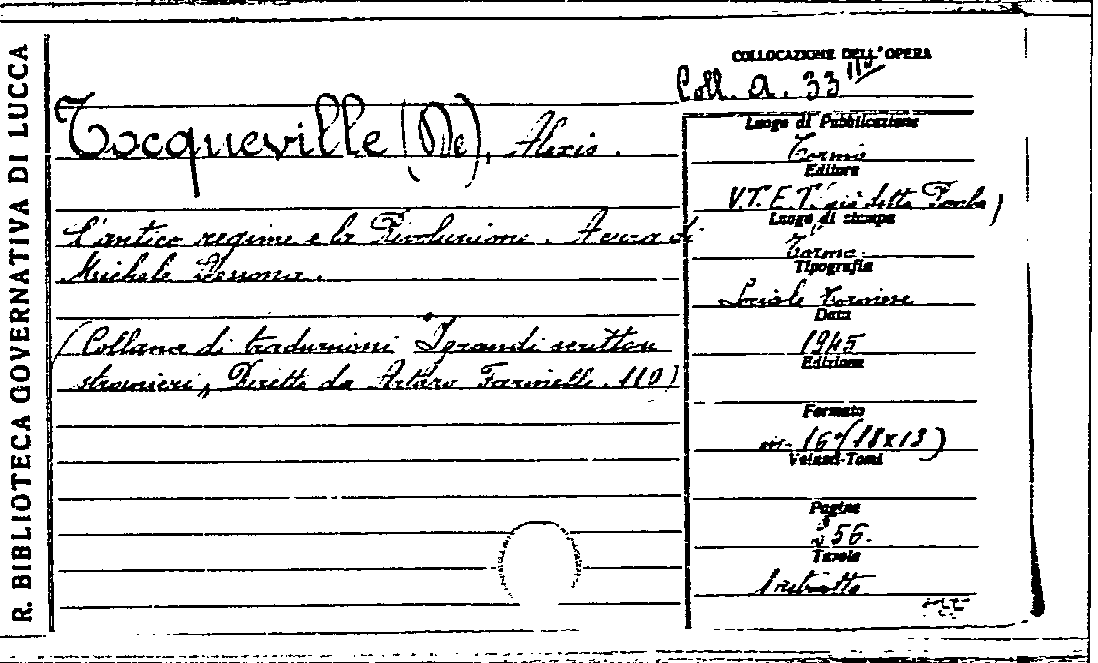 R. BIBLIOTECA GOVERNATIVA DI LUCCA
Tocqueville (De), Alexis.
L'antico regime e la Rivoluzione. A cura di
Michele
(Collana di traduzioni "I grandi scrittori
stranieri" Diretta da Arturo Farinelli. 110)
COLLOCAZIONE DELL'OPERA
Coll. A. 33
Luogo di Pubblicazione
Torino
Editore
U.T.E.T. (già ditta Pomba)
Luogo di stampa
Torino
Tipografia
Sociale torinese
Data
1945
Edizione
Formato
in-16° (18x13)
Volumi-Tomi
Pagine
56.
Tavole
1 ritratto